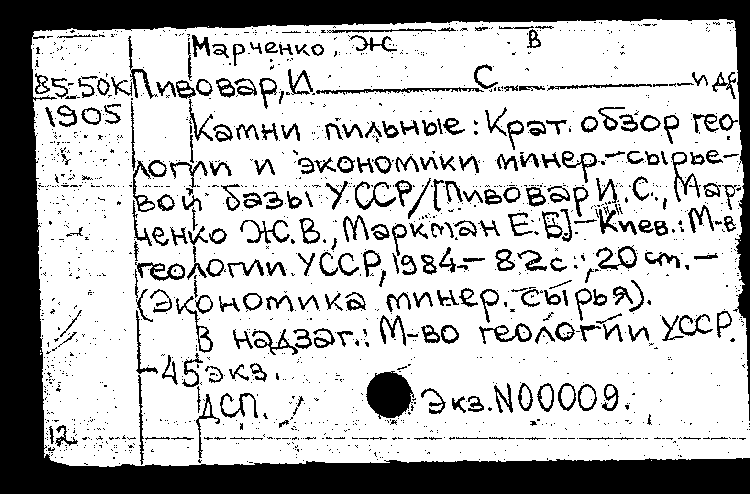 Марченко, Ж В
85-50к Пивовар, И С и др
1905
Камни пильные : Крат. обзор гео-
логии и экономики минер.-сырье-
вой базы УССР/[Пивовар И.С., Мар-
ченко Ж.В., Маркман Е.Б.]-Киев.: М-во
геологии УССР, 1984.- 82с.; 20 cm. -
(Экономика минер. сырья).
В надзаг.: М-во геологии УССР.
-45 экз.
ДСП. Экз. N00009.
12